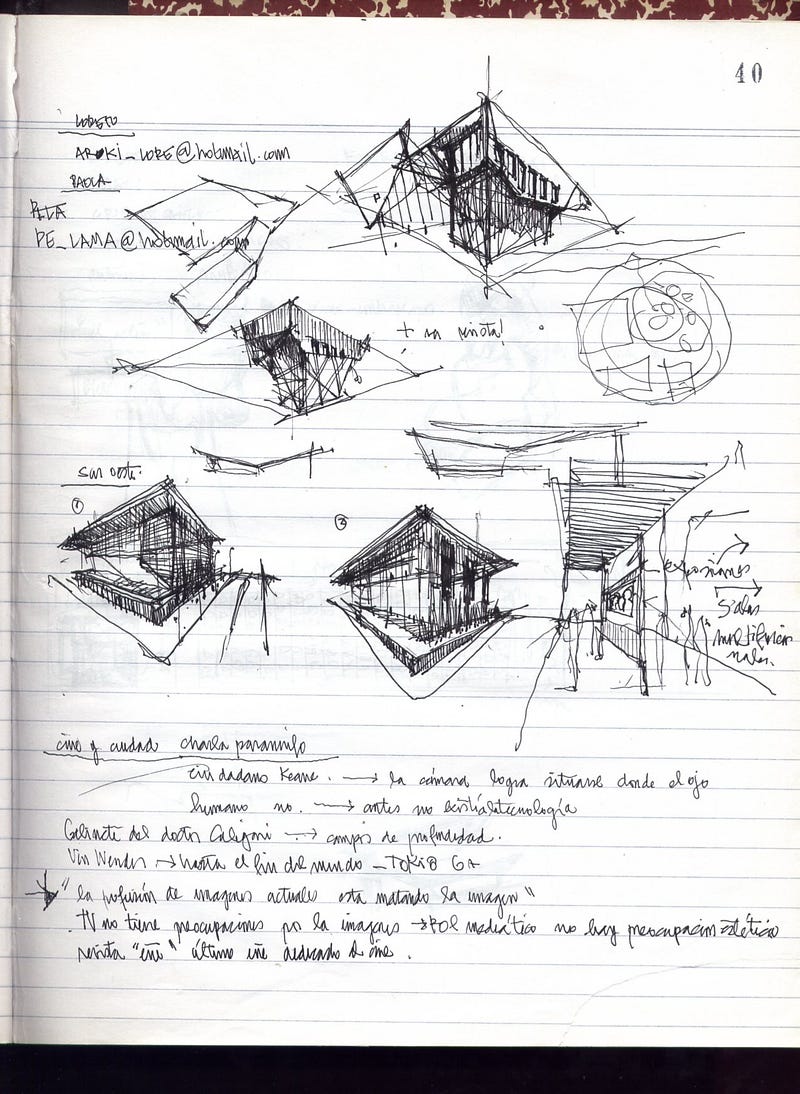 40
LORETO
ARQKI_LORE@hotmail.com
PAOLA
PE_LAMA@hotmail.com
sur oeste.
①
②
expresiones
Salas
multifuncio
nales.
cine y ciudad charla paraninfo
ciudadano Keane. → la cámara logra situarse donde el ojo
humano no. → antes no existía la tecnología
Gabinete del doctor Caligari → campos de profundidad.
Vin Wender → hasta el fin del mundo - TOKIO GA
"la profusión de imagenes actuales esta matando la imagen"
TV no tiene preocupaciones por la imagenes → Rol mediático no hay preocupacion estética
revista "eñe" último eñe dedicado al cine.